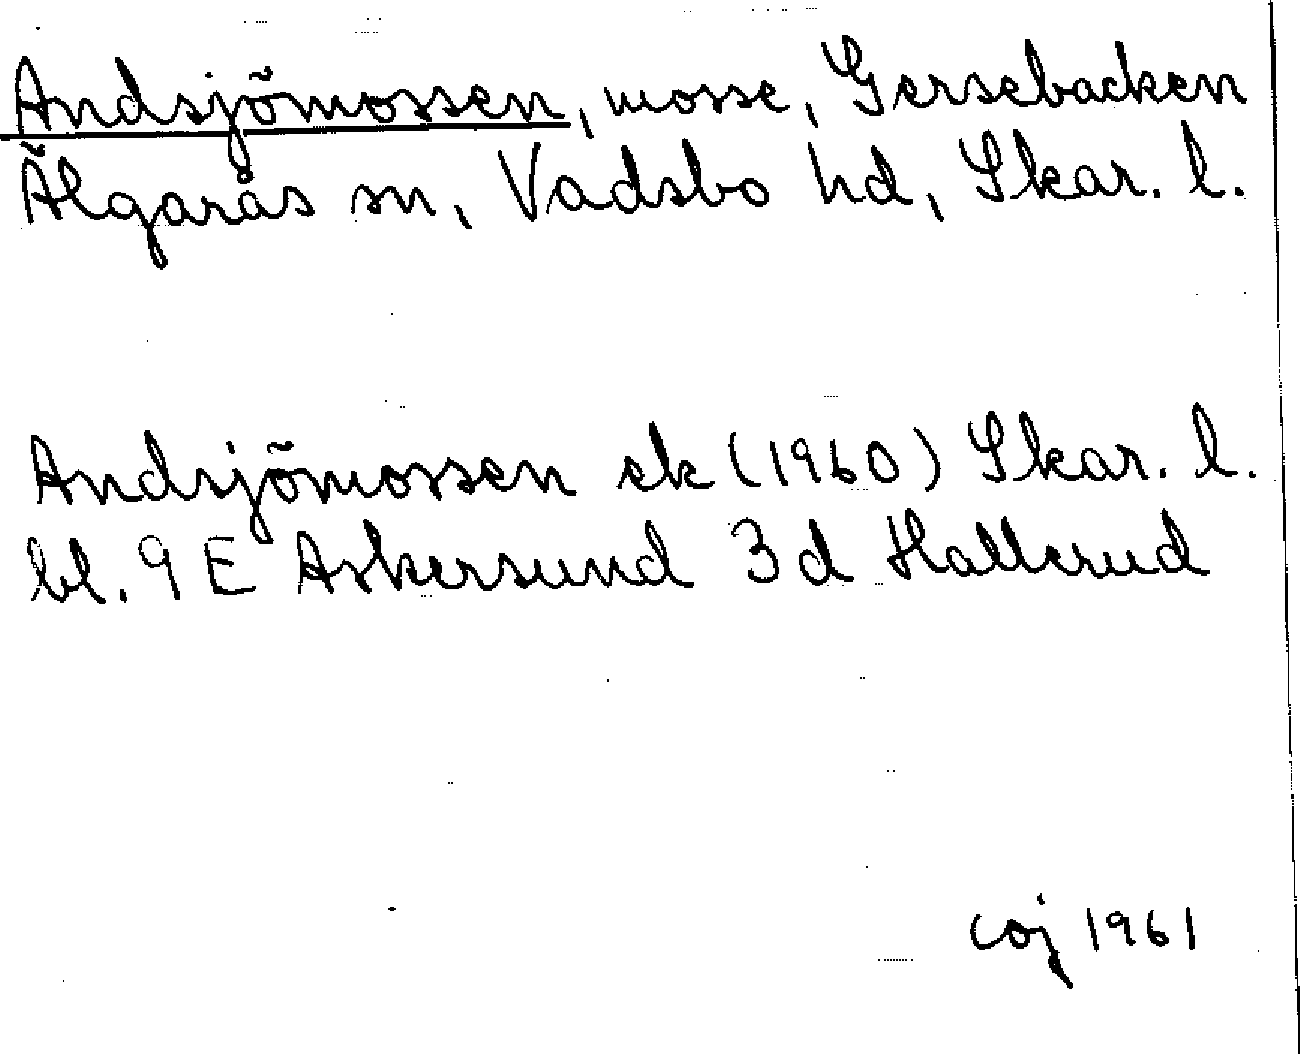 Andsjömossen, mosse, Gersebacken
Älgarås sn, Vadsbo hd, Skar. l.
Andsjömossen ek (1960) Skar. l.
bl. 9 E Askersund 3 d Hallerud
coj 1961